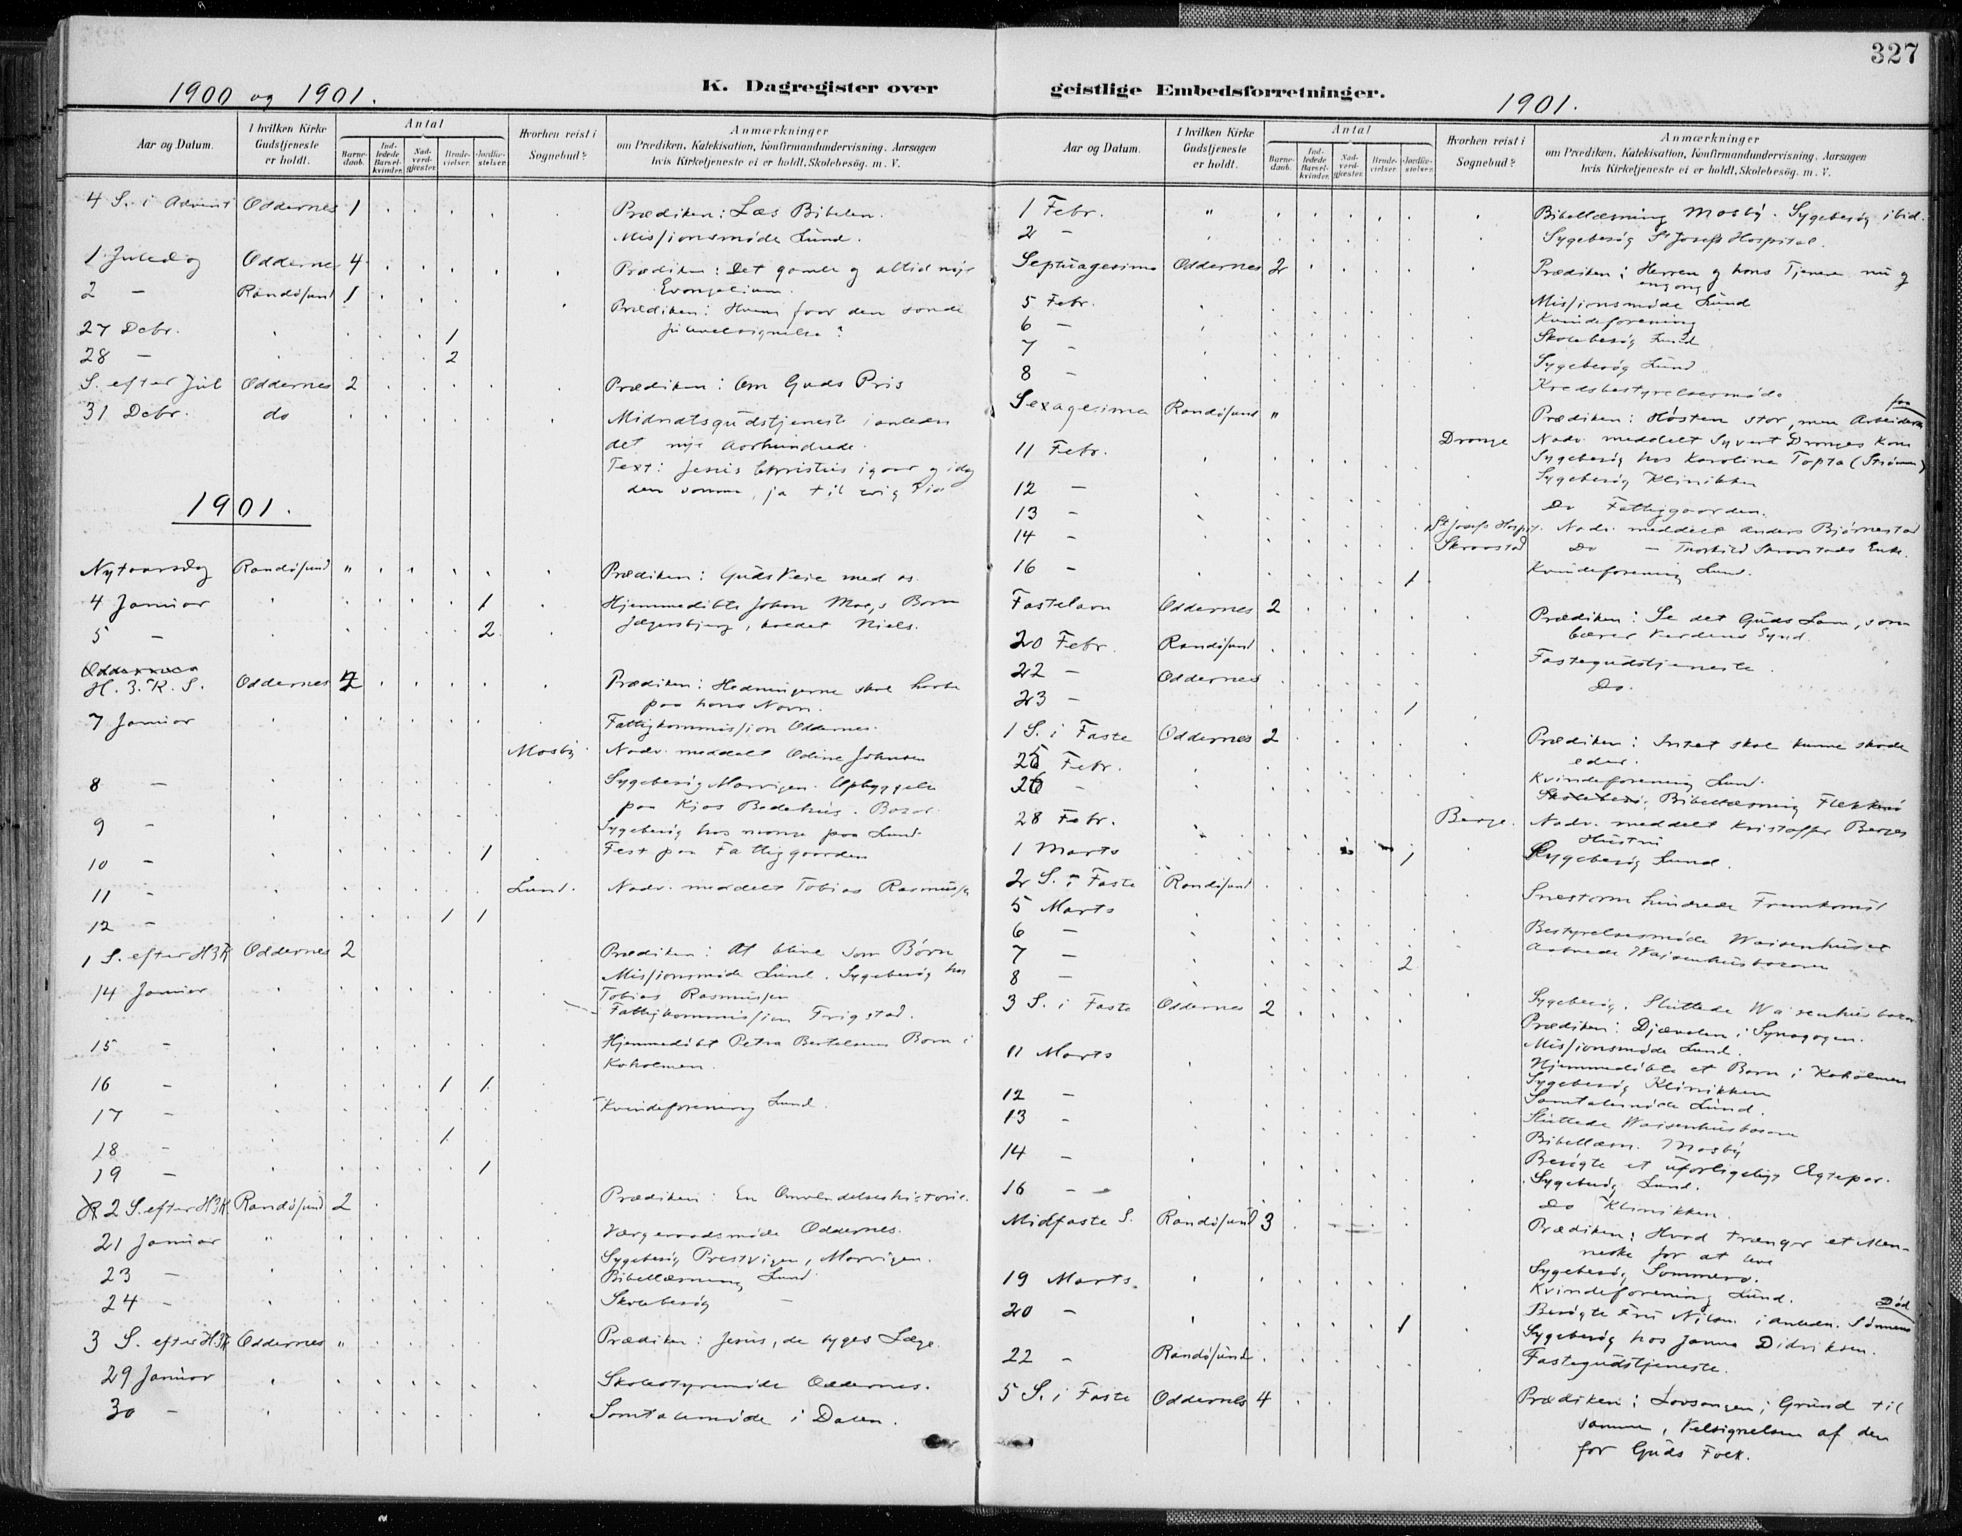 327
1900 og 1901.
K. Dagregister over
Aar og Datum.
I hvilken Kirke Gudstjeneste er holdt.
Antal
Barnedaab.
Indledede Barselkvinder.
Nadverdgjæster.
Brudevielser.
Jordfæstelser.
Hvorhen reist i Sognebud?
Anmærkninger
om Prædiken, Katekisation, Konfirmandundervisning, Aarsagen
hvis Kirketjeneste ei er holdt, Skolebesög. m. V.
4 S. i Advent Oddernes 1 Prædiken: Læs Bibelen.
Missionsmøde Lund.
1 Juledag Oddernes 4 Prædiken: Det gamle og altid nye
Evangelium.
2 — Randøsund 1 Prædiken: Hvem faar den sande
Julevelsignelse?
27 Decbr. 1
28 — 2
S. efter Jul Oddernes 2 Prædiken: Om Guds Pris
31 Decbr. do Midnatsgudstjeneste i anledn.
det nye Aarhundrede.
Text: Jesus Christus igaar og idag
den samme, ja til evig Tid
1901.
Nytaarsdag Randøsund " Prædiken: Guds Veie med os.
4 Januar 1 Hjemmedøbte Johan Moe,s Barn
Jegersbjerg, kaldet Niels.
5 — 2
Oddernes
H. 3. K. S. Oddernes 2 Prædiken: Hedningerne skal haabe
paa hans Navn.
7 Januar Fattigkommission Oddernes.
Mosby Nadv. meddelt Odine Johnsen
8 — Sygebesøg Marvigen. Opbyggelse
paa Kjos Bedehus. Basar.
9 — Sygebesøg hos mange paa Lund
10 — 1 Fest paa Fattiggaarden
11 — Lund. Nadv. meddelt Tobias Rasmussen
12 — 1 1
1 S. efter H3K Oddernes 2 Prædiken: At blive som Børn
Missionsmøde Lund. Sygebesøg hos
14 Januar Tobias Rasmussen
Fattigkommission Frigstad.
15 — Hjemmedøbt Petra Bertelsens Barn i
Koholmen.
16 — 1 1
17 — Kvindeforening Lund.
18 — 1
19 — 1
2 S. efter H3K. Randøsund 2 Prædiken: En Omvendelseshistorie.
21 Januar " Vergeraadsmøde Oddernes.
Sygebesøg Prestvigen, Marvigen.
23 — Bibellæsning Lund
24 — Skolebesøg —
3 S. efter H3K Oddernes " Prædiken: Jesus, de syges Læge.
29 Januar Skolestyremøde Oddernes.
30 — Samtalemøde i Dalen.
geistlige Embedsforretninger.
1901.
Aar og Datum.
I hvilken Kirke Gudstjeneste er holdt.
Antal
Barnedaab.
Indledede Barselkvinder.
Nadverdgjæster.
Brudevielser.
Jordfæstelser.
Hvorhen reist i Sognebud?
Anmærkninger
om Prædiken, Katekisation, Konfirmandundervisning, Aarsagen
hvis Kirketjeneste ei er holdt, Skolebesög. m. V.
1 Febr. " Bibellæsning Mosby. Sygebesøg ibid.
2 — Sygebesøg St Josefs Hospital.
Septuagesima Oddernes 2 Prædiken: Herren og hans Tjenere nu og
engang
5 Febr. Missionsmøde Lund
6 — Kvindeforening
7 — Skolebesøg Lund
8 — Sygebesøg Lund.
Kredsbestyrelsesmøde.
Sexagesima Randøsund " Prædiken: Høsten stor, men Arbeiderne faa
11 Febr. Drange Nadv. meddelt Syvert Dranges Kone
Sygebesøg hos Karolina Topta (Strømme)
12 — Sygebesøg Klinikken
13 — Do Fattiggaarden.
14 — St Josefs Hospit. Nadv. meddelt Anders Bjørnestad
Skraastad Do — Thorkild Skraastads Enke.
16 — 1 Kvindeforening Lund.
Fastelavn Oddernes 2 Prædiken: Se det Guds Lam, som
bærer Verdens Synd.
20 Febr. Randøsund Fastegudstjeneste.
22 — Oddernes Do.
23 — 1
1 S. i Faste Oddernes 2 Prædiken: Intet skal kunne skade
eder.
25 Febr. Kvindeforening Lund.
26 — Skolebesø, Bibellæsning Flekkerø
28 Febr. Berge. Nadv. meddelt Kristoffer Berges
Hustru
1 Marts 1 Sygebesøg Lund.
2 S. i Faste Randøsund Snestorm hindrede Fremkomst
5 Marts
6 — Bestyrelsesmøde Waisenhuset
7 — 2 Aabnede Waisenhusbasaren
8 —
3 S. i Faste Oddernes 2 Sygebesøg. Sluttede Waisenhusbasar
Prædiken: Djævelen i Synagogen.
11 Marts Missionsmøde Lund.
Hjemmedøbte et Barn i Koholmen
12 — Sygebesøg Klinikken
Samtalemøde Lund.
13 — Sluttede Waisenhusbasaren
14 — Bibellæsn. Mosby
Besøgte et uforligeligt Ægtepar.
16 — Sygebesøg Lund.
Do Klinikken.
Midfaste S. Randøsund 3 Prædiken: Hvad trænger et Menneske
for at leve
19 Marts. Sygebesøg Sommero.
Kvindeforening Lund.
20 — 1 Besøgte Fru Nilsen i anledn. Sønnens Død
Sygebesøg hos Janna Didriksen.
22 — Randøsund Fastegudstjeneste.
5 S. i Faste Oddernes 4 Prædiken: Lovsangen; Grund til
samme, Velsignelsen af den
for Guds Folk.